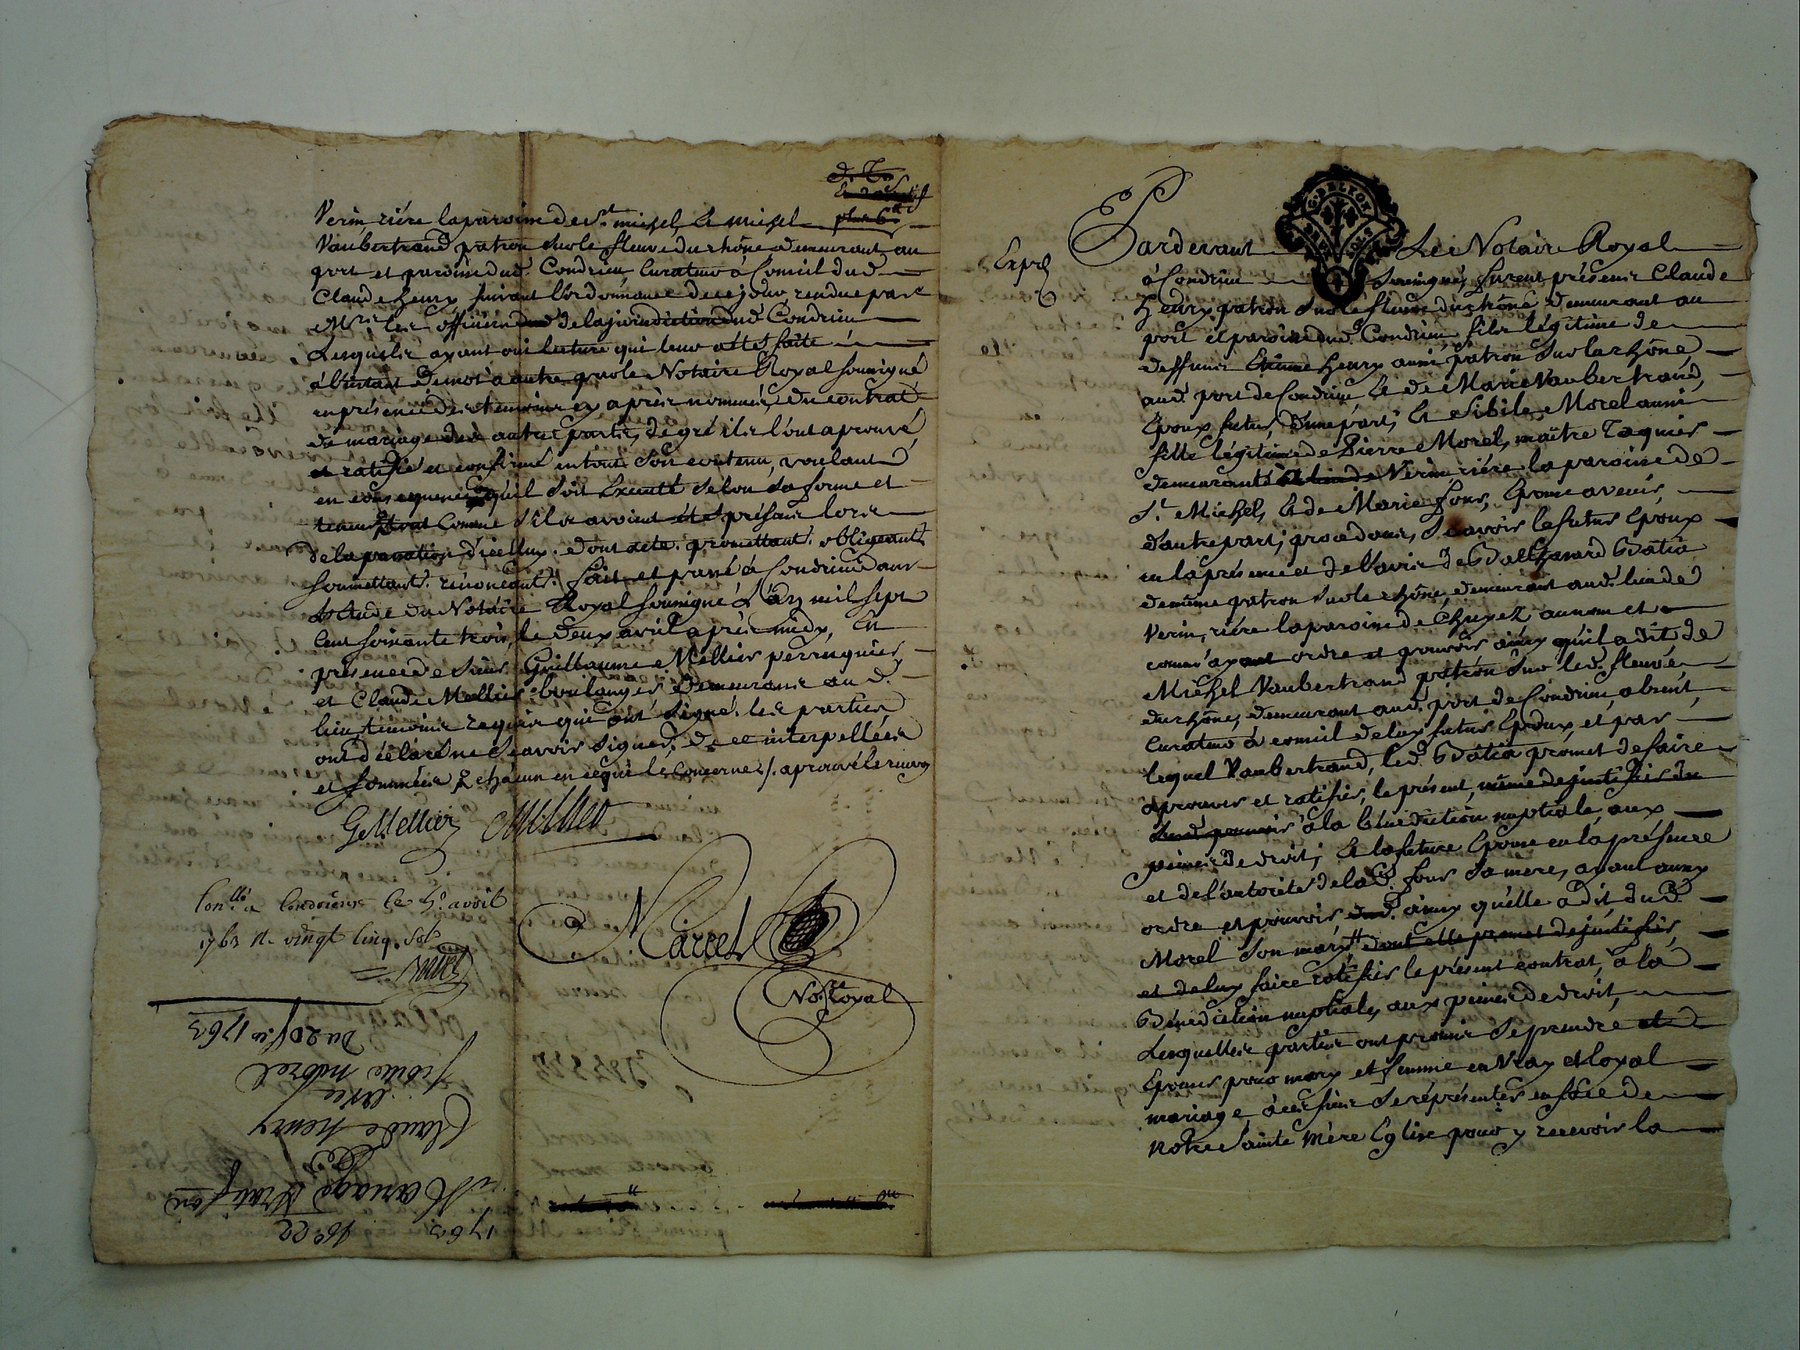 Verin riére la paroisse de St. michel, et michel
Vaubertrand patron sur le fleuve du rhône demeurant au
port et paroisse dud. Condrieu, Curateur à Conseil dud.
Claude henry suivant l'ordonnance de ce jour, rendue par
Mrs. les officiers de la jurisdiction dud. Condrieu
Lesquels ayant oui lecture qui leur a été faite
à l'instant de mot à autre par le Notaire Royal soussigné
en présence des témoins cy après nommés, du contrat
de mariage des autres parts, de gré ils l'ont aprouvé
et ratifié et confirmé en tout son contenu, voulant
en consequence qu'il soit Executé selon sa forme et
teneur, tout comme s'ils avoient été présens lors
de la passation d'icelluy. dont acte. promettant. obligeant.
soumettant. renonceant. fait et passé à Condrieu dans
l'Etude du Notaire Royal soussigné L'an mil sept
Cent soixante trois, le deux avril après midy, En
présence de sieur Guillaume Mellier perruquier,
et Claude Mellier boulanger demeurans aud.
lieu témoins requis qui ont signé. les parties
ont déclaré ne sçavoir signer, de ce interpellées
et sommées, chacun en ce qui le concerne /. aprouvé
G. Mellier
Marcel
Nore. Royal
Conllé. a Condrieux le 5e. avril
1763 R. vingt cinq sols
1763
Mariage
Claude henry
avec
morel
Du 20 1763
GN. DE LYON
Expéd.
Pardevant Le Notaire Royal
à Condrieu soussigné, furent présens Claude
henry patron sur le fleuve du rhône demeurant au
port et paroisse dud. Condrieu, fils légitime de
deffunts Etienne henry aussi patron sur le rhône,
aud. port de Condrieu, et de Marie Vaubertrand,
Epoux futur, d'une part, et Sibile Morel aussi
fille légitime de Pierre Morel, maître
demeurant Verin riére la paroisse de
St. Michel, et de Marie Fons, Epouse avenir,
d'autre part, procedants, sçavoir le futur Epoux
en la présence et de l'avis de Balthazard Batia
de même patron sur le rhône, demeurant aud. lieu de
Verin, riére la paroisse de Chuyez au nom et
comm'ayant ordre et pouvoir ainsy qu'il a dit de
Michel Vaubertrand patron sur led. fleuve
du rhône, demeurant aud. port de Condrieu, absent,
Curateur à conseil de luy futur Epoux, et par
lequel Vaubertrand, led. Batia promet de faire
aprouver et ratifier, le présent, même de justifier du
dud. pouvoir à la bénédiction nuptiale, aux
peines de droit; et la future Epouse en la présence
et de l'autorité de lad. Fons sa mere, ayant aussy
ordre et pouvoir ainsy qu'elle a dit, dud.
Morel son mary, dont elle promet de justifier,
et de luy faire ratifier le présent contrat, à la
Bénédiction nuptiale, aux peines de droit,
Lesquelles parties ont promis se prendre et
Epouser pour mary et femme en vray et loyal
mariage à ces fins se réprésenter en face de
notre sainte Mère Eglise pour y recevoir la